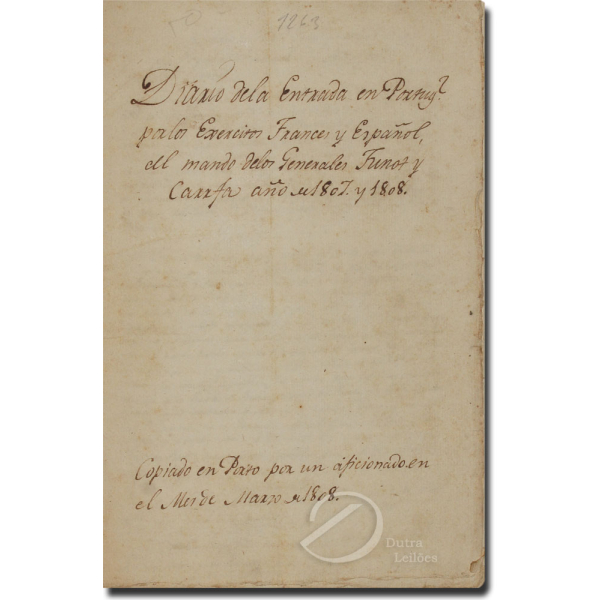 1263
Diario dela Entrada en Portugl.
palos Exercitos Frances y Español,
all mando delos Generales Junot y
Carrfa año de 1807. y 1808.
Copiado en Porto por un aficionado en
el Mes de Marzo de 1808.
Dutra
Leilões